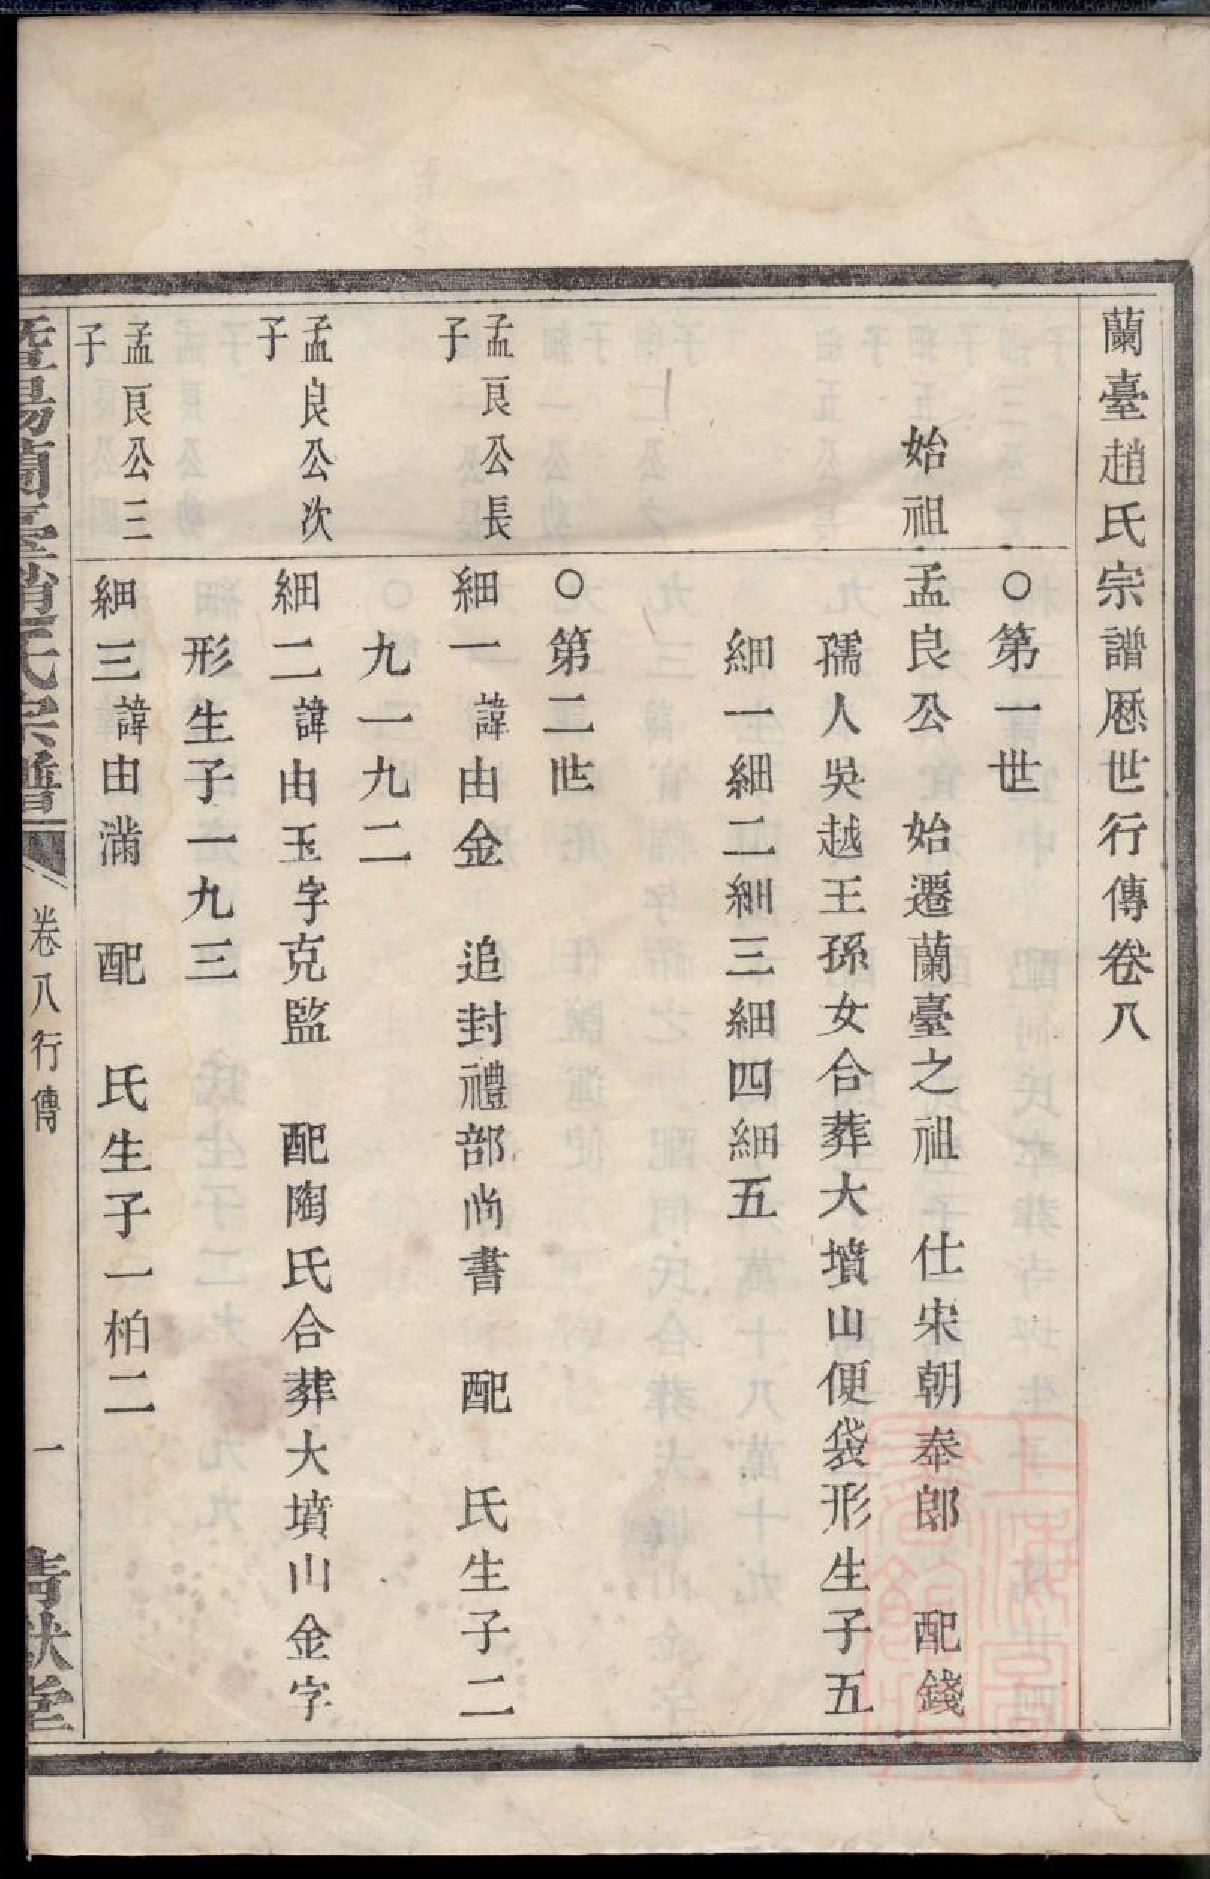 蘭臺趙氏宗譜厯世行傳卷八
○第一世
始祖
孟良公　始遷蘭臺之祖　仕宋朝奉郎　配錢
孺人吳越王孫女合葬大墳山便袋形生子五
細一細二細三細四細五
○第二世
孟良公長
子
細一諱由金　追封禮部尚書　配　氏生子二
九一九二
孟良公次
子
細二諱由玉字克監　配陶氏合葬大墳山金字
形生子一九三
孟良公三
子
細三諱由滿　配　氏生子一柏二
暨陽蘭臺趙氏宗譜
卷八行傳
一
清獻堂
上海圖書館藏